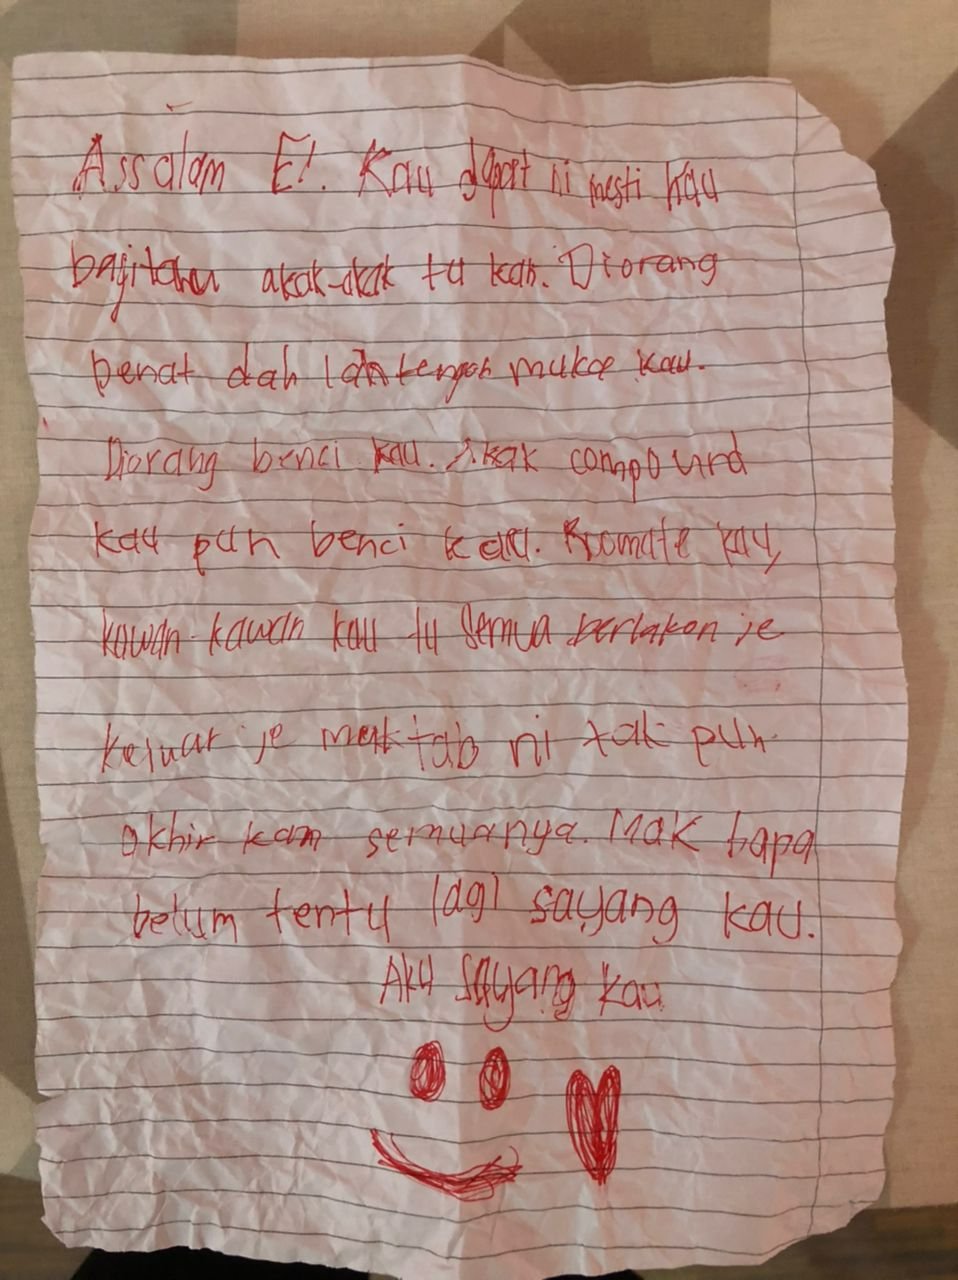 Assalam E!. Kau dapat ni mesti kau
bagitahu akak-akak tu kan. Diorang
penat dah lah tengok muka kau.
Diorang benci kau. Akak compound
kau pun benci kau. Roomate kau,
kawan-kawan kau tu semua berlakon je
keluar je maktab ni tak pun
akhir kan semuanya. Mak bapa
belum tentu lagi sayang kau.
Aku sayang kau